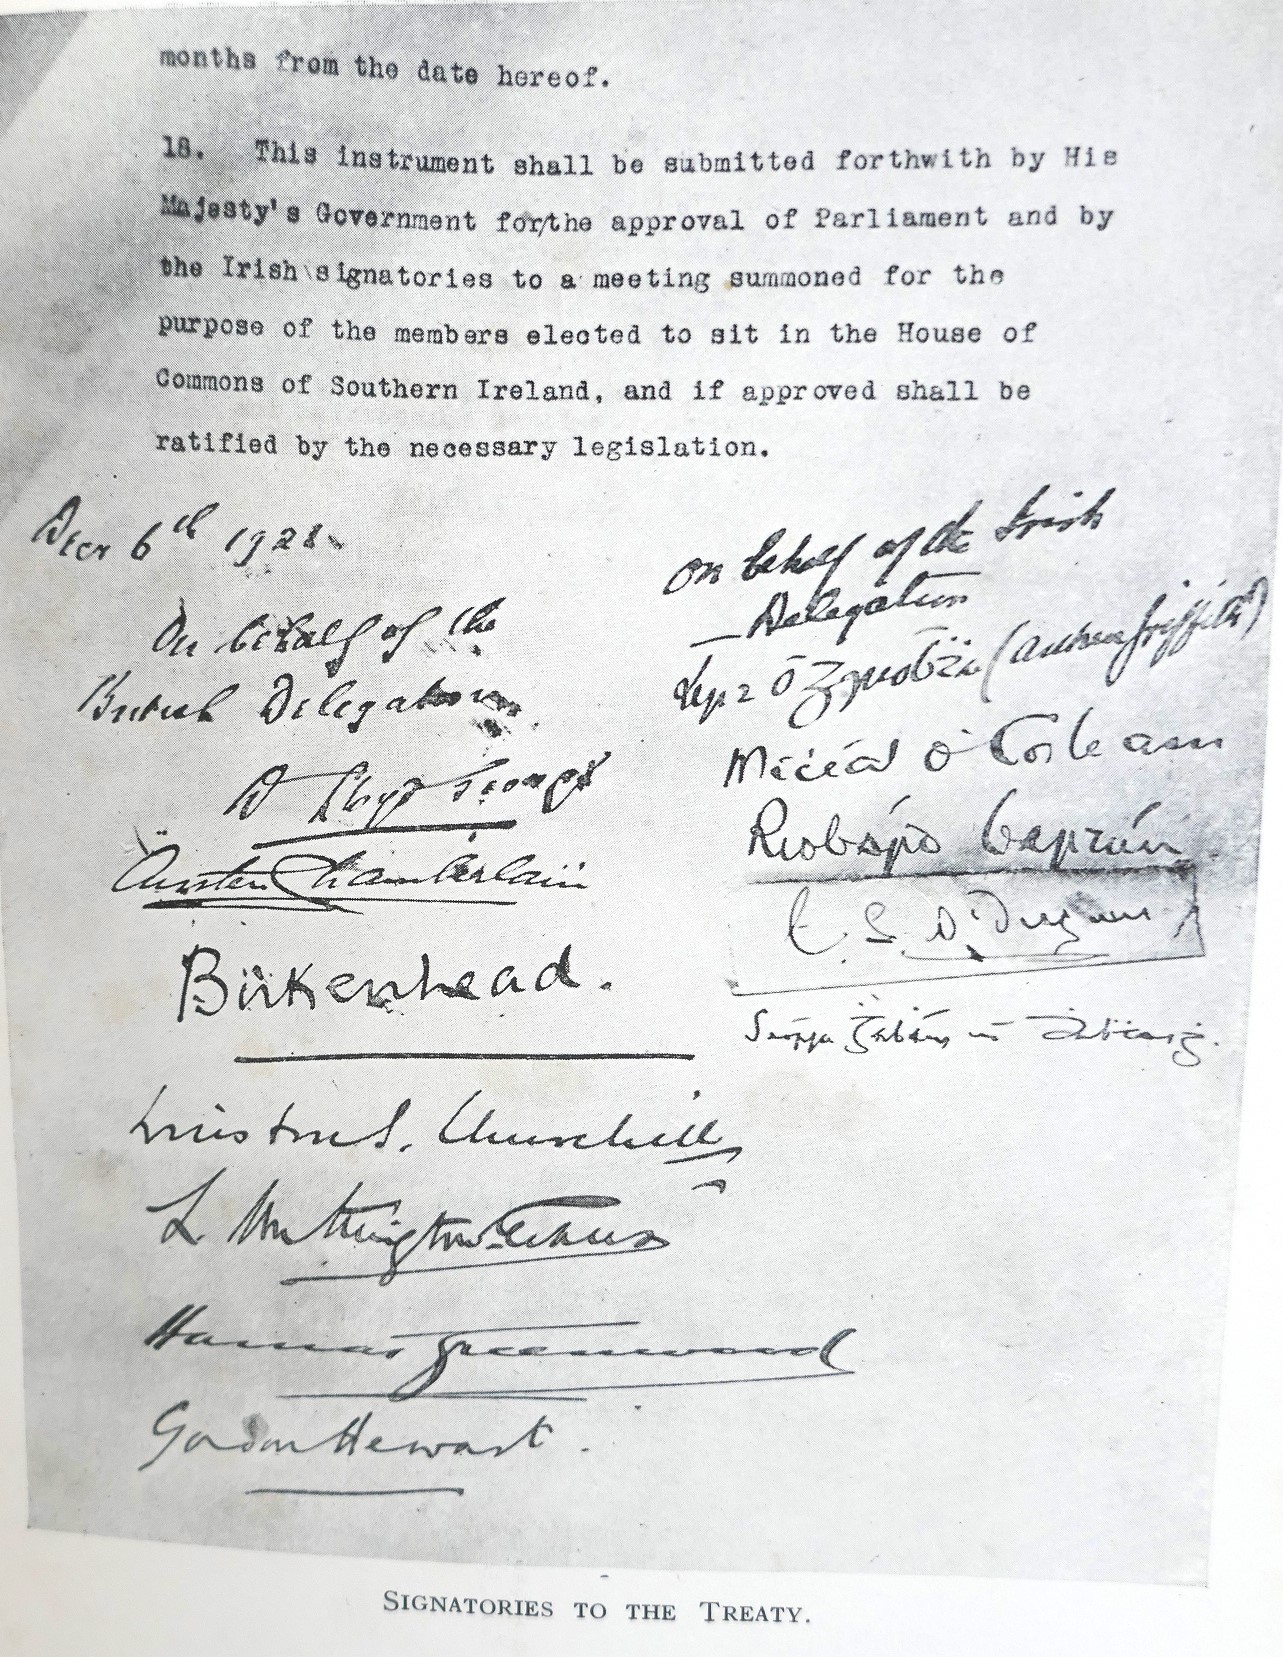 months from the date hereof.
18. This instrument shall be submitted forthwith by His
Majesty's Government for/the approval of Parliament and by
the Irish\signatories to a meeting summoned for the
purpose of the members elected to sit in the House of
Commons of Southern Ireland, and if approved shall be
ratified by the necessary legislation.
Decr 6th 1921.
On behalf of the
British Delegation
D Lloyd George
Austen Chamberlain
Birkenhead.
Winston S. Churchill
L. Worthington-Evans
Hamar Greenwood
Gordon Hewart.
On behalf of the Irish
Delegation
Art Ó Gríobhtha (Arthur Griffith)
Mícheál Ó Coileáin
Riobárd Bartún
E. S. Ó Dugain
Seórsa Ghabháin uí Dhubhthaigh.
SIGNATORIES TO THE TREATY.